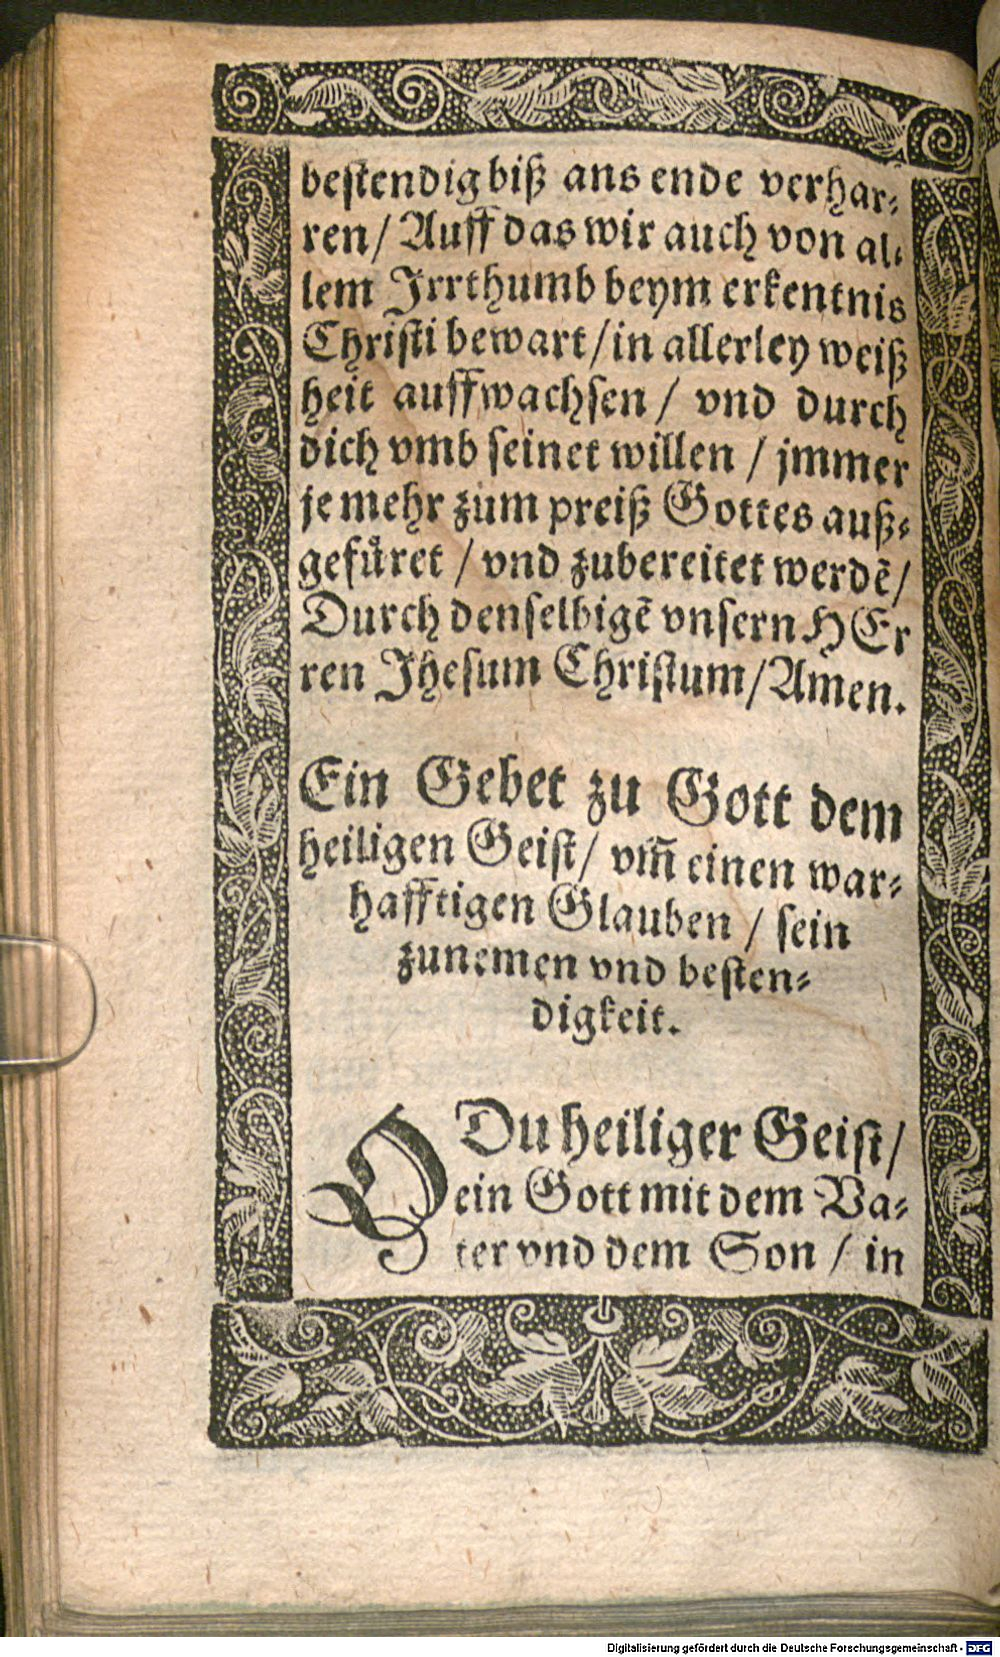 bestendig biß ans ende verhar⸗
ren/ Auff das wir auch von al⸗
lem Irrthumb beym erkentnis
Christi bewart/ in allerley weiß
heit auffwachsen / vnd durch
dich vmb seinet willen / jmmer
je mehr zum preiß Gottes auß⸗
gefuͤret / vnd zubereitet werdē/
Durch denselbigē vnsern HEr
ren Jhesum Christum/ Amen.
Ein Gebet zu Gott dem
heiligen Geist/ vm̃ einen war⸗
hafftigen Glauben / sein
zunemen vnd besten⸗
digkeit.
O Du heiliger Geist/
ein Gott mit dem Va⸗
ter vnd dem Son / in
Digitalisierung gefördert durch die Deutsche Forschungsgemeinschaft - DFG